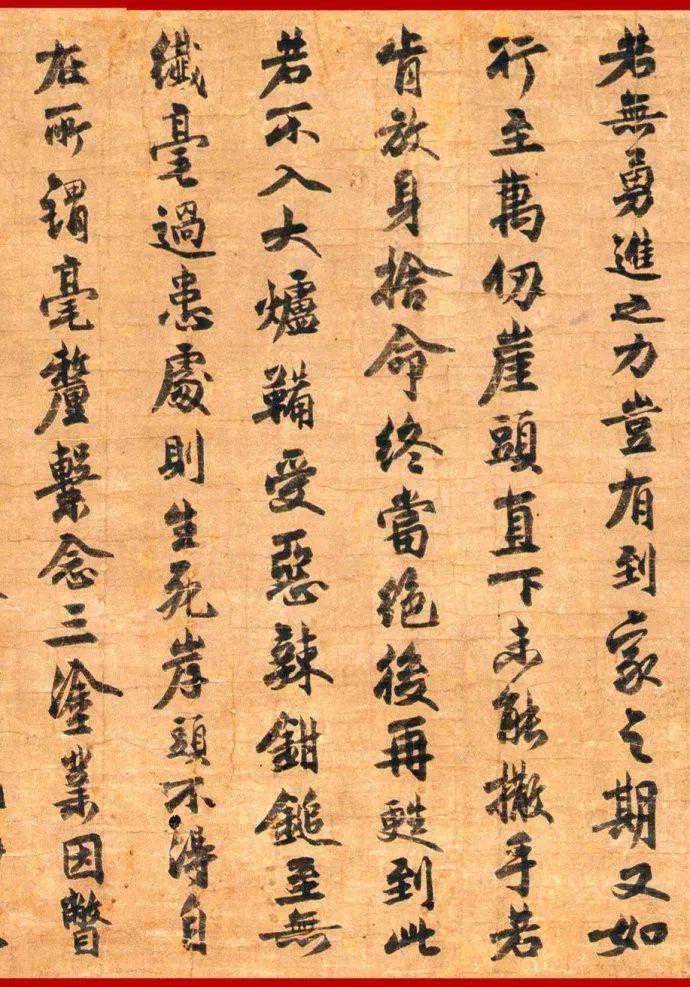 若無勇進之力豈有到家之期又如
行至萬仭崖頭直下未能撒手若
肯放身捨命終當絶後再甦到此
若不入大爐鞴受惡辣鉗鎚至無
纖毫過患處則生死岸頭不得自
在所謂毫釐繫念三塗業因瞥